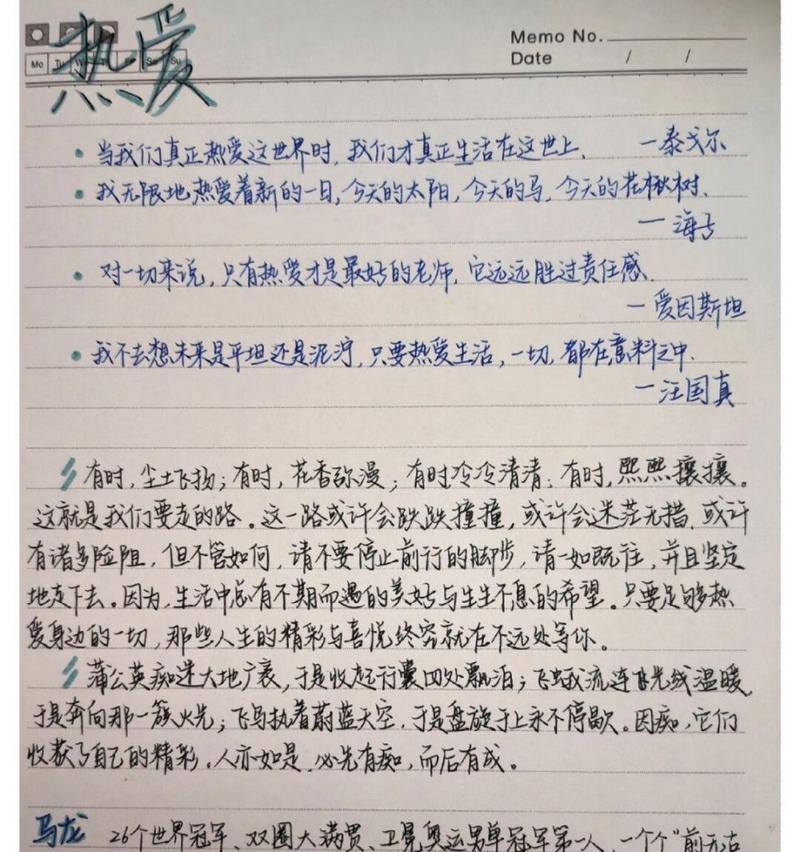 热爱
Memo No.
Mo Tu W T F Sa Su
Date / /
• 当我们真正热爱这世界时,我们才真正生活在这世上. —泰戈尔
• 我无限地热爱着新的一日,今天的太阳,今天的马,今天的花楸树.
—海子
• 对一切来说,只有热爱才是最好的老师,它远远胜过责任感.
—爱因斯坦
• 我不去想未来是平坦还是泥泞,只要热爱生活,一切,都在意料之中.
—汪国真
有时,尘土飞扬;有时,花香弥漫;有时冷冷清清;有时,熙熙攘攘。
这就是我们要走的路。这一路或许会跌跌撞撞,或许会迷茫无措,或许
有诸多险阻,但不管如何,请不要停止前行的脚步,请一如既往,并且坚定
地走下去。因为,生活中总有不期而遇的美好与生生不息的希望。只要足够热
爱身边的一切,那些人生的精彩与喜悦终究就在不远处等你。
蒲公英痴迷大地广袤,于是收起行囊四处飘泊;飞蛾流连光线温暖,
于是奔向那一簇火光;飞鸟执着蔚蓝天空,于是盘旋于上永不停歇。因痴,它们
收获了自己的精彩.人亦如是,必先有痴,而后有成。
马龙 26个世界冠军、双圈大满贯、卫冕奥运男单冠军第一人,一个个"前无古